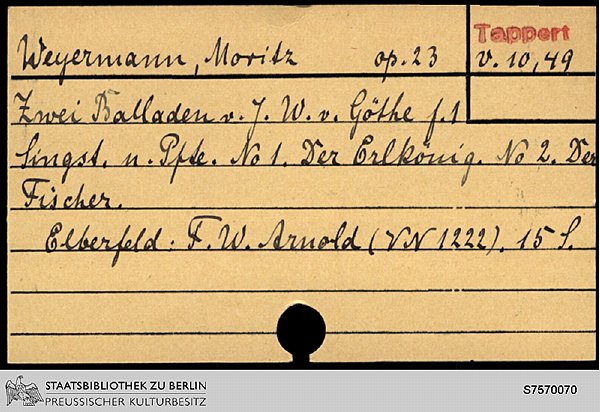 Tappert
Weyermann, Moritz op. 23 V. 10,49
Zwei Balladen v. J. W. v. Göthe f. 1
Singst. u. Pfte. No 1. Der Erlkönig. No 2. Der
Fischer.
Elberfeld: F. W. Arnold (VN 1222). 15 S.
STAATSBIBLIOTHEK ZU BERLIN
PREUSSISCHER KULTURBESITZ
S7570070